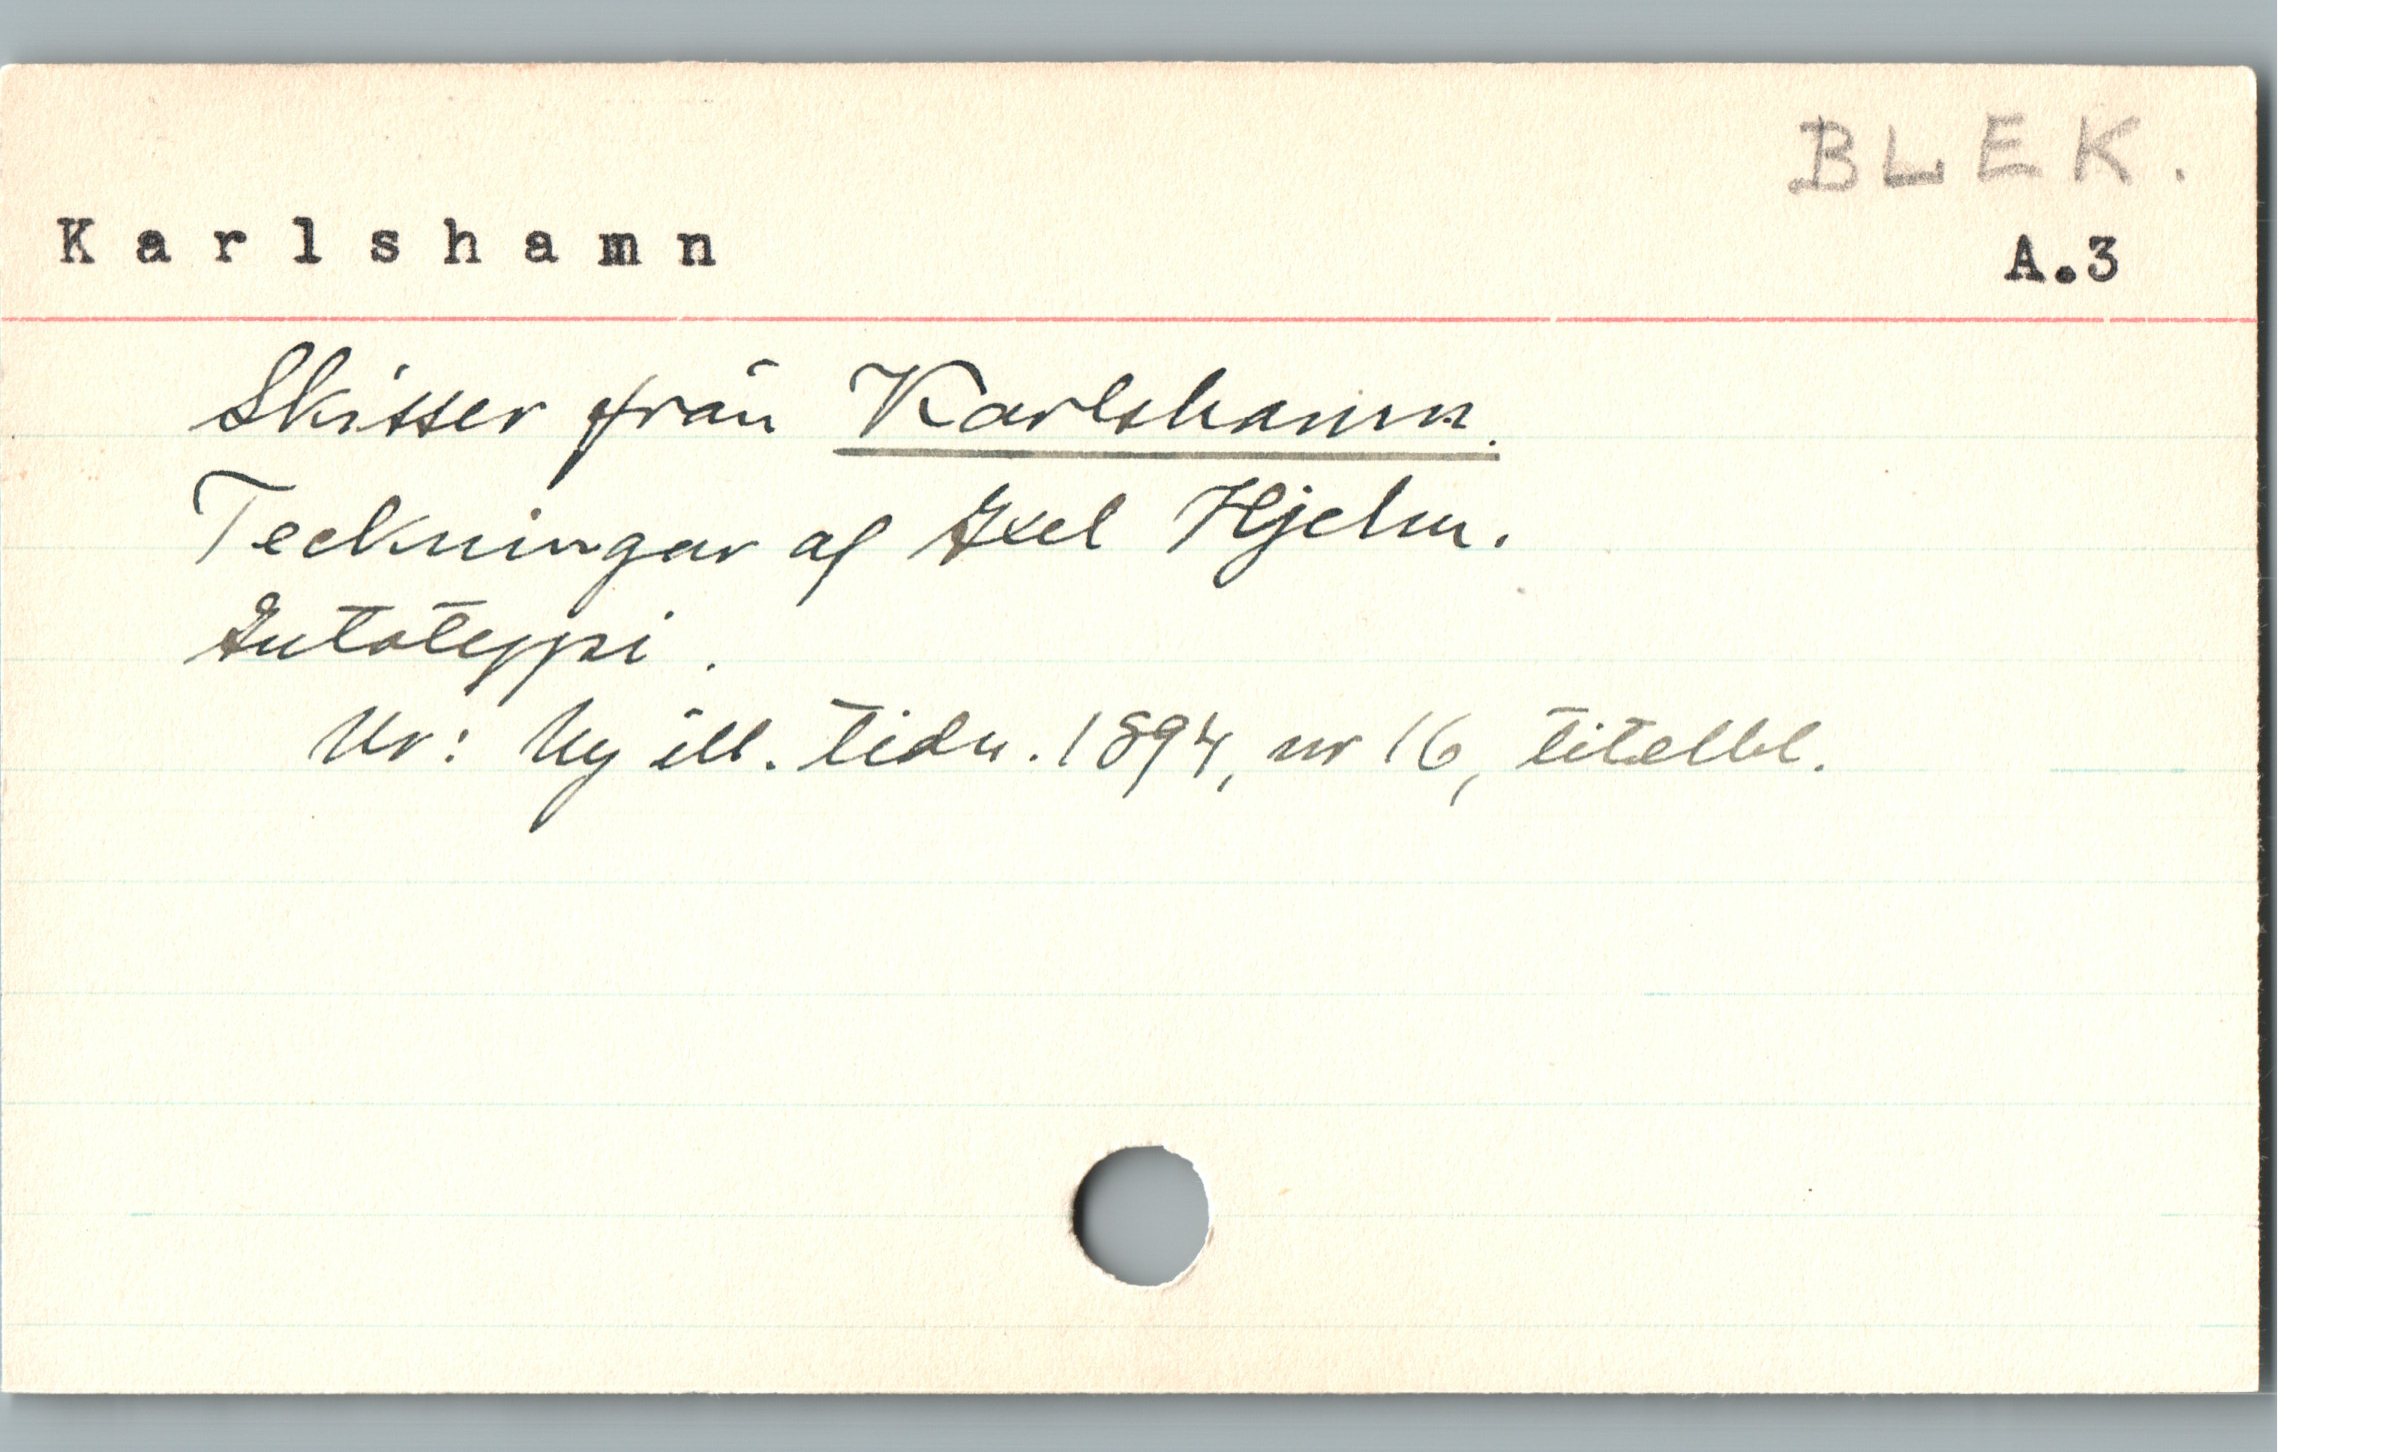 BLEK.
Karlshamn A.3
Skisser från Karlshamn.
Teckningar af Axel Hjelm.
Autotypi.
Ur: Ny ill. tidn. 1894, nr 16, titelbl.